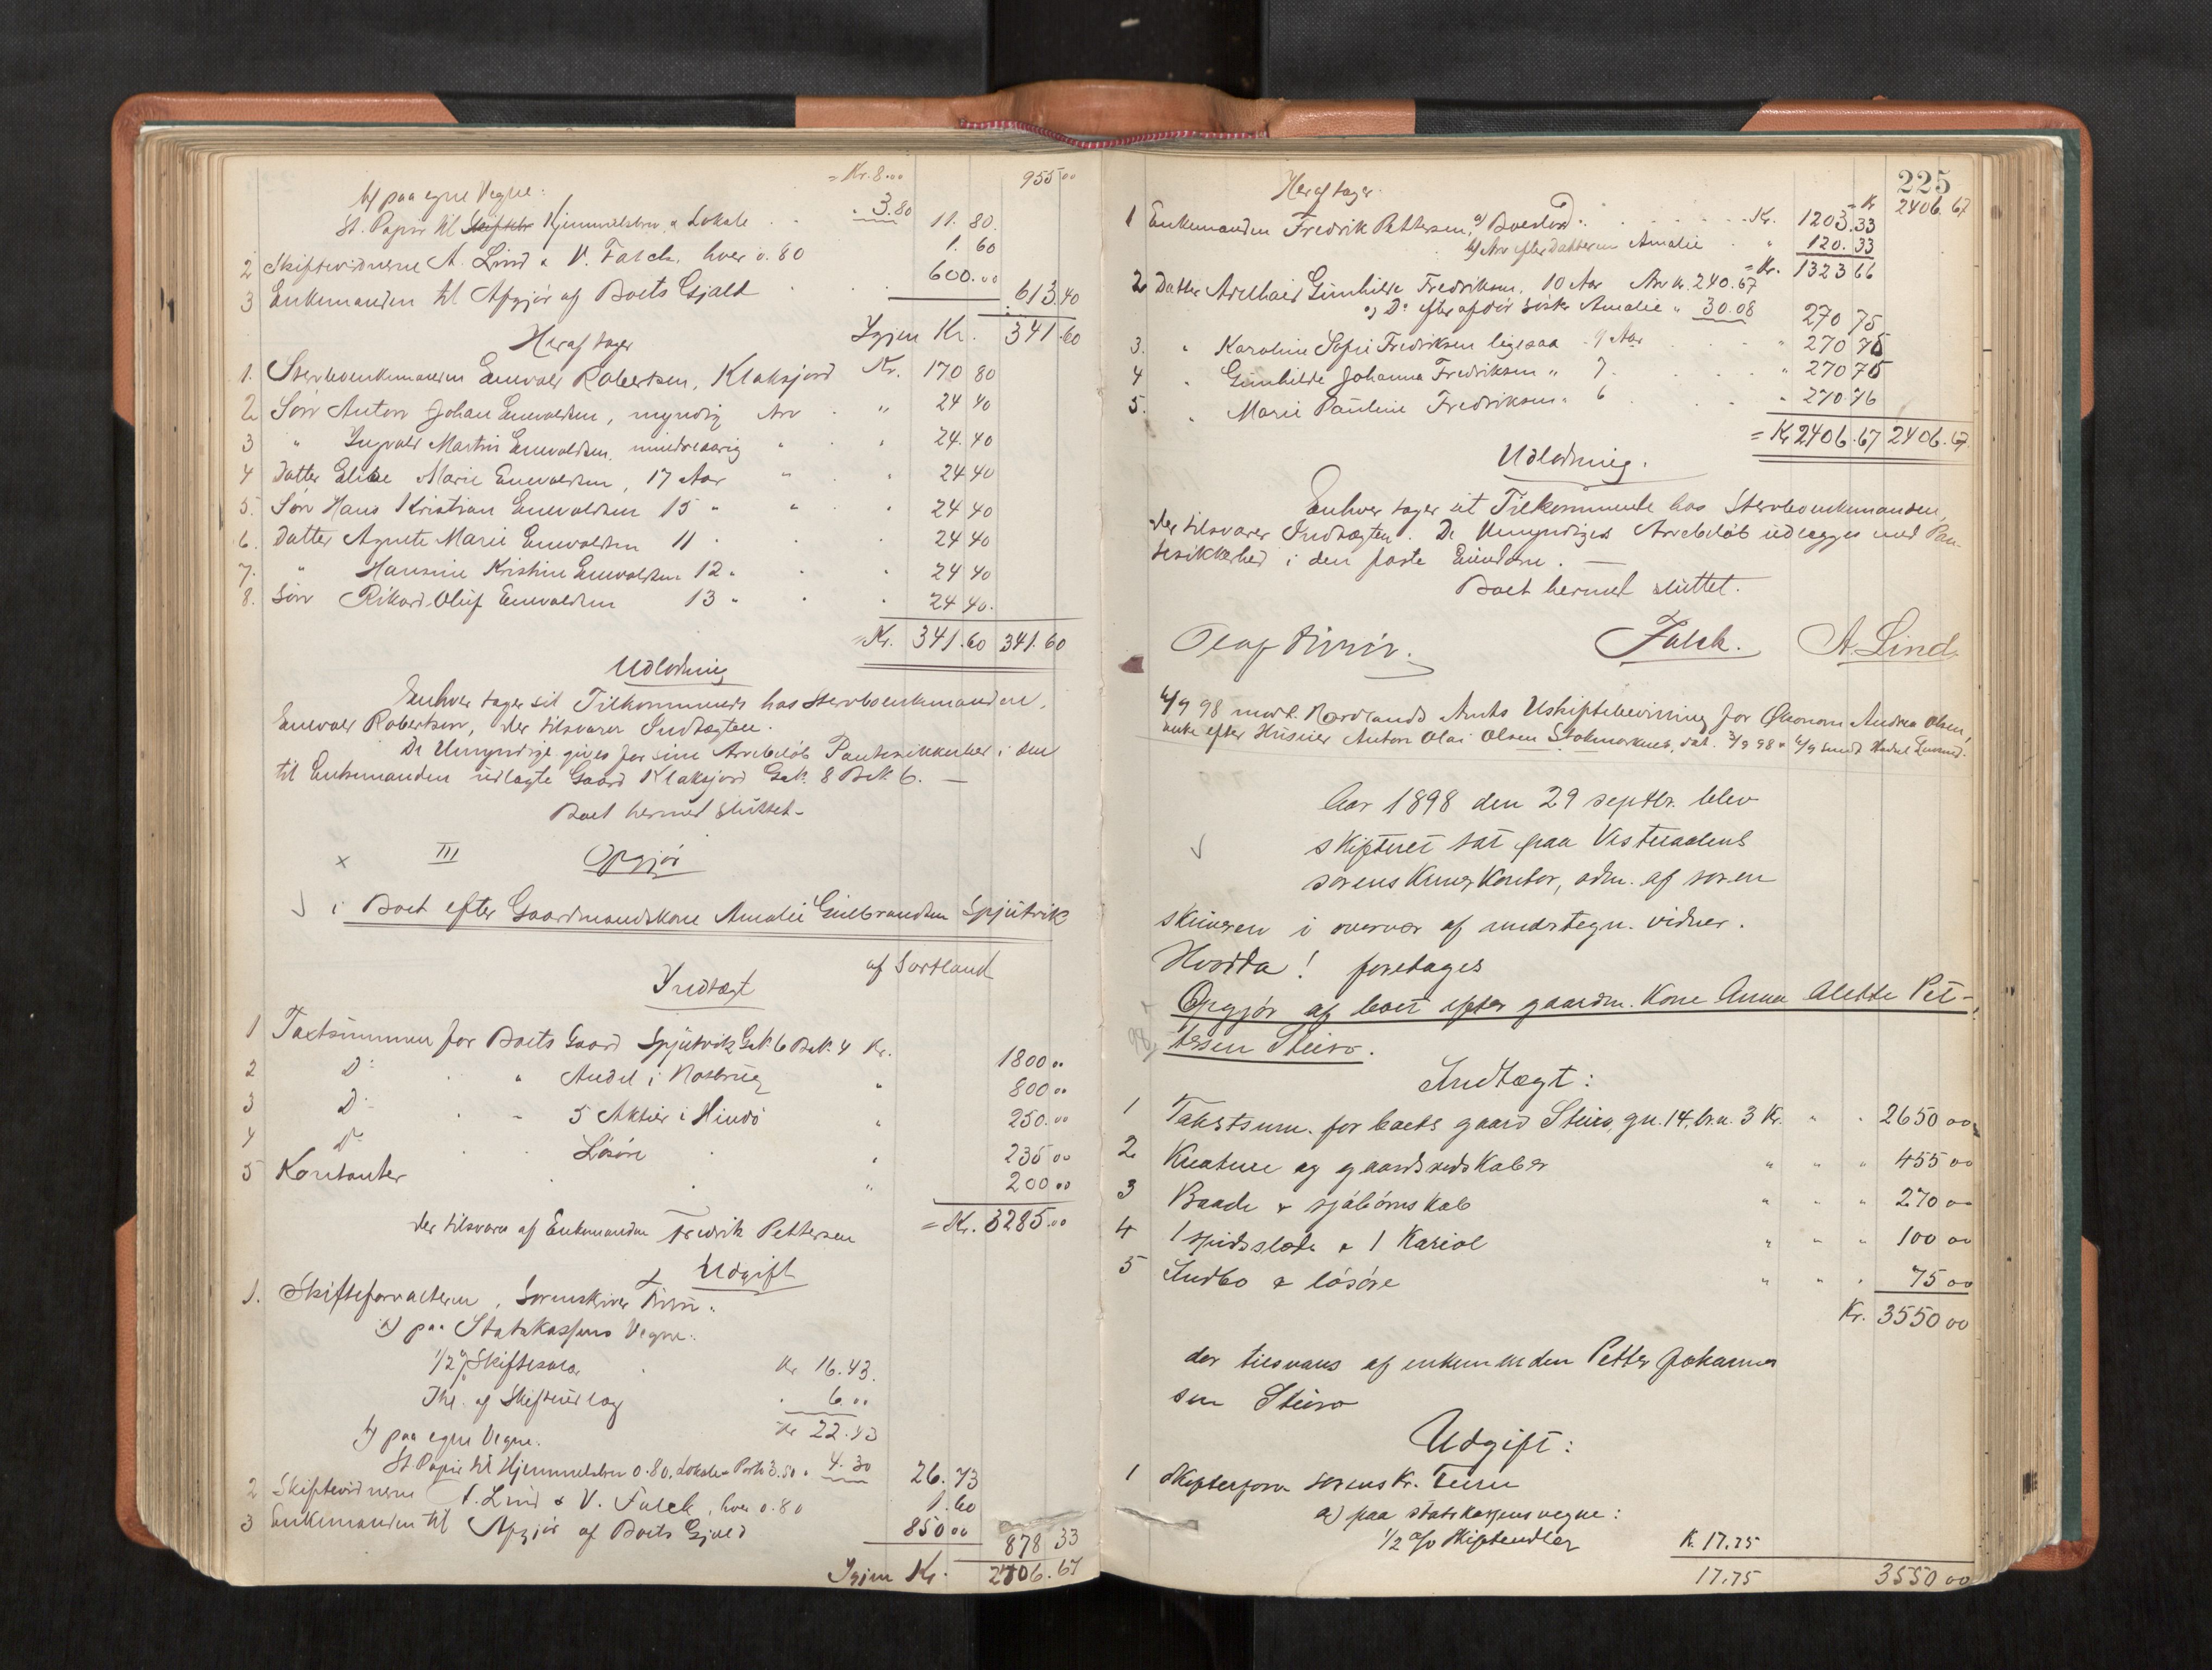 = Kr. 8.00 955 00
b) paa egne Vegne:
St. Papir til Hjemmelsbrev, & Lokale . . " 3.80 11. 80.
2 Skiftevidnerne A. Lind & V. Falck, hver 0.80 1. 60
3 Enkemanden til Afgjør af Boets Gjæld . . . 600.00 613.40
Heraf tager Igjen Kr. 341.60
1. Stervboenkemanden Enevald Robertsen, Klaksjord Kr. 170 80
2 Søn Anton Johan Enevoldsen, myndig Arv . " 24 40
3 " Ingvald Martin Enevoldsen, mindreaarig " . " 24. 40
4 Datter Marie Enevoldsen, 17 Aar " . " 24 40
5. Søn Hans Kristian Enevoldsen 15 " " . " 24 40
6. Datter Agnete Marie Enevoldsen 11 " . . 24 40
7. " Hansine Kristine Enevoldsen 12 " . " 24 40
8. Søn Rikard Oluf Enevoldsen 13 " . " 24 40.
= Kr. 341.60 341.60
Udlodning
Enhver tager sit Tilkommende hos Stervboenkemanden,
Enevold Robertsen, der tilsvarer Indtægten.
De Umyndige gives for sine Arvebeløb Pantesikkerhed i den
til Enkemanden udlagte Gaard Klaksjord Gak. 8 Bnk. 6. —
Boet hermed sluttet.
x III Opgjør
i Boet efter Gaardmandskone Amalie Gulbrandsen Spjutvik
af Sortland
Indtægt
1 Taxtsummen for Boets Gaard Spjutvik Gak. 6 Bnk. 4 Kr. 1800 00
2 Do . " Andel i Notbrug " 800 00
3 Do . - 5 Aktier i Hindö " 250.00
4 Do . . Lösöre . " 235 00
5 Kontanter . . " 200 00
der tilsvares af Enkemanden Fredrik Pettersen = Kr. 3285.00
Udgift
1. Skifteforvalteren, Sorenskriver
a) paa Statskassens Vegne:
1/2 % Skiftesalær . Kr 16.43.
Ihl. af Skifteudlæg . 6.00
Kr 22.43
b) paa egne Vegne.
St. Papir til Hjemmelsbrev 0.80, Lokale & Porto 3.50 " 4.30 26.73
2 Skiftevidnerne A. Lind & V. Falck, hver 0.80 1.60
3 Enkemanden til Afgjør af Boets Gjæld 850 00 878 33
Igjen Kr. 2406.67
225
Heraf tager: Kr 2406.67
1 Enkemanden Fredrik Pettersen, a) Boeslod: . . . Kr. 1203.33
b) Arv efter Datteren Amalie . " 120.33
= Kr. 1323 66
2 Datter Gunhilde Fredriksen, 10 Aar Arv Kr. 240.67
a) Do efter afdöd söster Amalie " 30.08 270 75
3. " Karoline Sofie Fredriksen ligesaa 9 Aar . . " 270 75
4 " Gunhilde Johanna Fredriksen " 7 . . . " 270 75
5. " Marie Pauline Fredriksen " 6 . . . 270.76
= Kr 2406.67 2406.67
Udlodning.
Enhver tager sit Tilkommende hos Stervboenkemanden,
der tilsvarer Indtægten. De Umyndiges Arvebeløb udlægges med Pan-
tesikkerhed i den faste Eiendom. —
Boet hermed sluttet.
Falck. A. Lind
6/9 98 modt. Nordlands Amts Uskiftebevilling for Økonom Andrea Olsen,
enke efter Huseier Anton Olai Olsen Stokmarknes, dat. 3/9 98 &
Aar 1898 den 29 septbr. blev
skifteret sat paa Vesteraalens
sorenskriverkontor, adm. af soren
skriveren i overvær af understegn. vidner.
Hvorda! foretages
Opgjør af boet efter gaardm. kone Anna Alette Pet-
tersen Steiro.
Indtægt:
1 Takstsum. for boets gaard Steiro, gn. 14, br.n. 3 Kr. " . 2650 00
2 Kreature og gaardsredskaber " " " 455 00
3 Baade & sjøbörnskab " . . 270 00
4 1 spidsslæde & 1 Kariol " " " 100 00
5 Indbo & lösöre " " . 75 00
Kr. 3550 00
der tilsvares af enkemanden Petter Johanne
sen Steiro
Udgift:
1 Skifteforv. sorenskr.
a) paa statskassens vegne:
1/2 % Kr. 17.75
17.75 3550 00